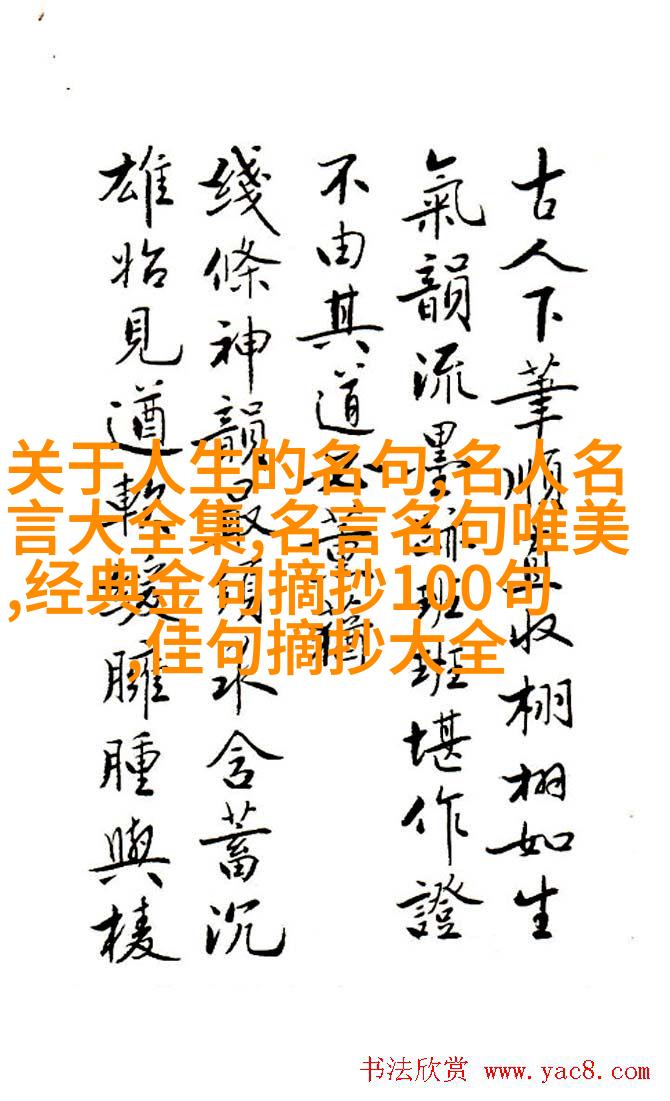 古人下筆順收栩栩如生
氣韻流墨跡班班堪作證
不由其道
綫條神韻最須求含蓄沉
雄始見遒臃腫與棱
关于人生的名句,名人名
言大全集,名言名句唯美
,经典金句摘抄100句
,佳句摘抄大全
书法欣赏 www.yac8.com